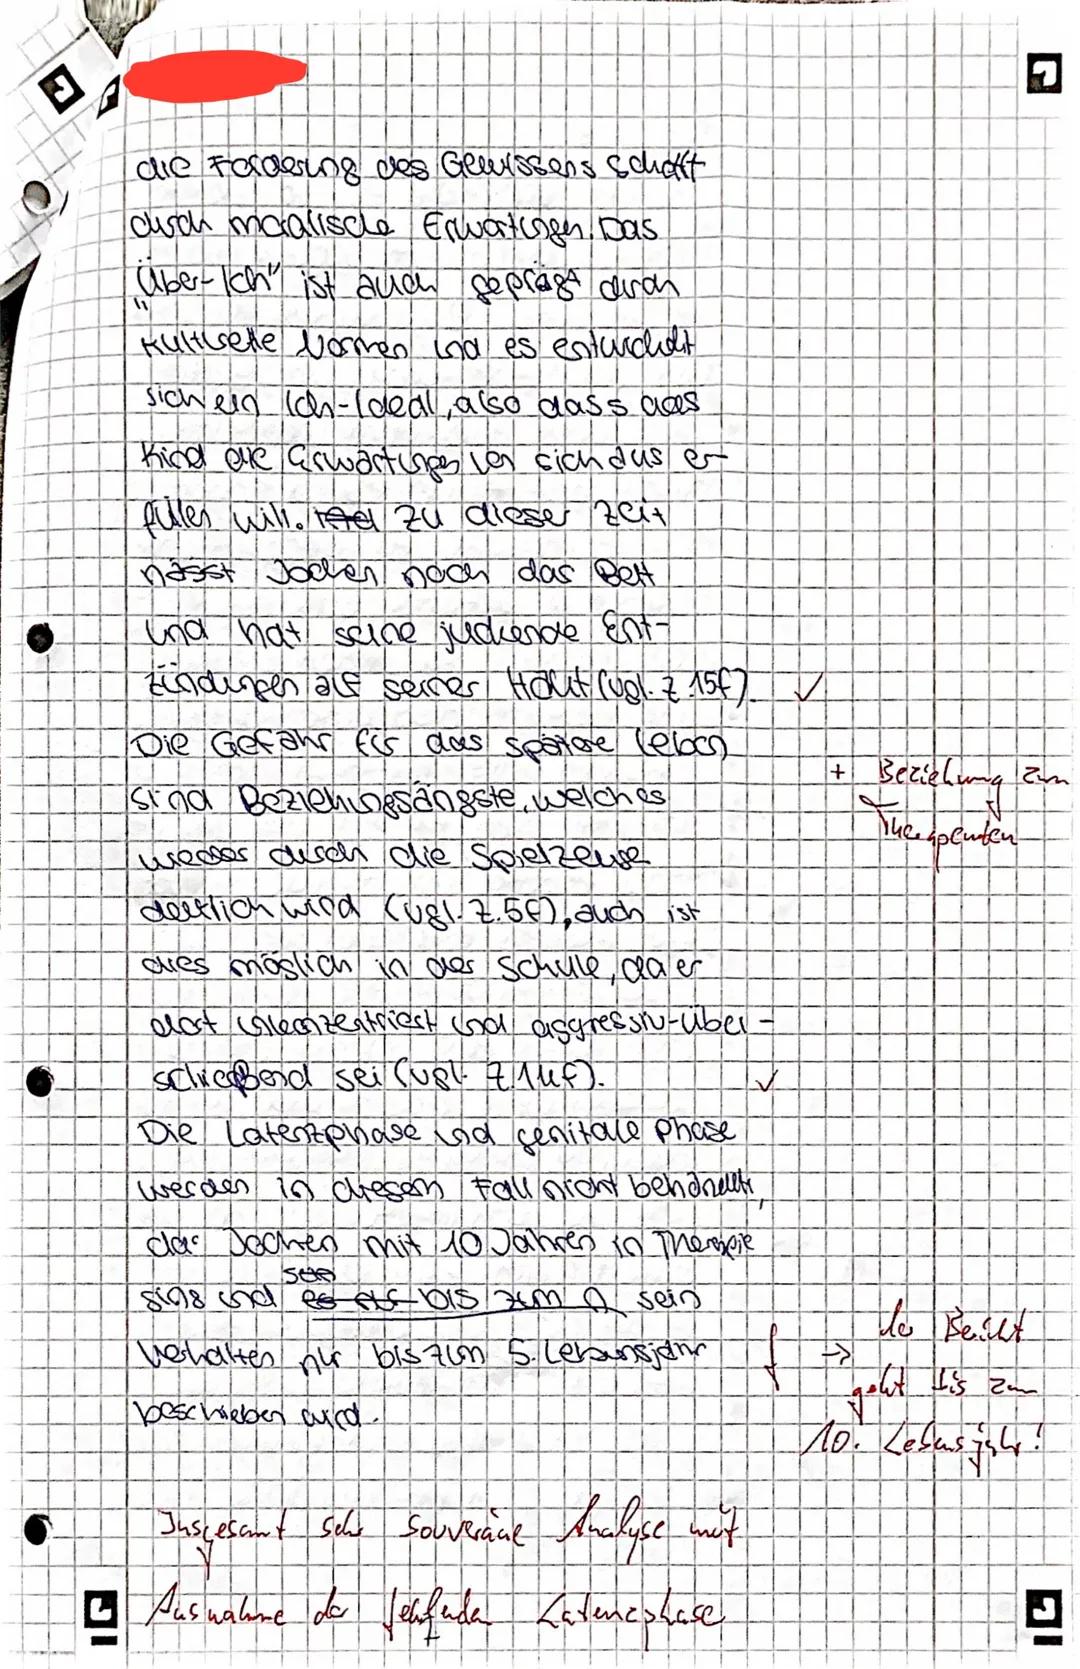 die Forderung des Gewissens schafft
durch moralische Erwartungen. Das
„Über-Ich" ist auch geprägt durch
kulturelle Normen und es entwickelt
sich ein Ich-Ideal, also dass das
Kind die Erwartungen von sich aus er-
füllen will. Zu dieser Zeit
nässt Jochen noch das Bett
und hat seine juckende Ent-
zündungen auf seiner Haut (vgl. Z. 15f).
Die Gefahr für das spätere Leben
+ Beziehung zum
sind Beziehungsängste, welches
Therapeuten
wieder durch die Spielzeuge
deutlich wird (vgl. Z. 5f), auch ist
dies möglich in der Schule, da er
dort unkonzentriert und aggressiv-über-
schießend sei (vgl. Z. 14f).
Die Latenzphase und genitale Phase
werden in diesem Fall nicht behandelt,
da Jochen mit 10 Jahren in Therapie
ging und es auf bis zum sein
Verhalten nur bis zum 5. Lebensjahr
beschrieben wird.
f → der Bericht
geht bis zum
10. Lebensjahr!
Insgesamt sehr souveräne Analyse mit
Ausnahme der fehlenden Latenzphase